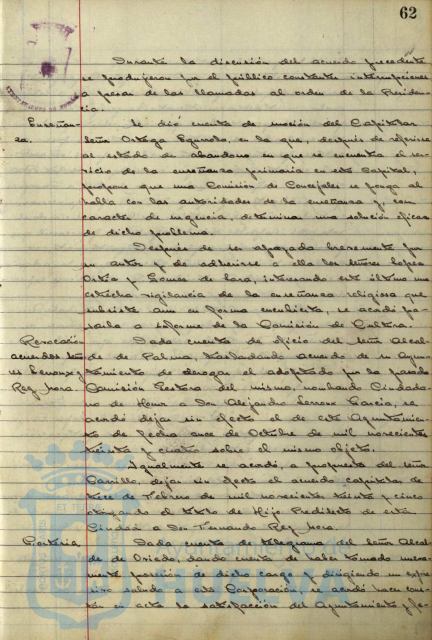 62
Durante la discusión del acuerdo precedente
se produjeron por el público constantes interrupciones
a pesar de las llamadas al orden de la Presiden-
cia.
Enseñan-
za.
Se dió cuenta de moción del Capitular
señor Ortega Egurrola, en la que, después de referirse
al estado de abandono en que se encuentra el ser-
vicio de la enseñanza primaria en esta Capital,
propone que una Comisión de Concejales se ponga al
habla con las autoridades de la enseñanza y con
caracter de urgencia, determinar una solución eficaz
de dicho problema.
Después de ser apoyada brevemente por
su autor y de adherirse a ella los señores
Ortiz y Gomez de Lara, interesando este último una
estrecha vigilancia de la enseñanza religiosa que
subsiste aun en forma encubierta, se acordó pa-
sarla a informe de la Comisión de Cultura.
Revocación
acuerdos
Lerroux y
Rey Mora
Dada cuenta de oficio del señor Alcal-
de de Palma, trasladando acuerdo de su Ayun-
tamiento de derogar el adoptado por la pasada
Comisión Gestora del mismo, nombrando Ciudada-
no de Honor a Don Alejandro Lerroux García, se
acordó dejar sin efecto el de este Ayuntamien-
to de fecha once de Octubre de mil novecientos
treinta y cuatro sobre el mismo objeto.
Igualmente se acordó, a propuesta del señor
Carrillo, dejar sin efecto el acuerdo capitular de
trece de Febrero de mil novecientos treinta y cinco
otorgando el título de Hijo Predilecto de esta
Ciudad a Don Fernando Rey Mora.
Dada cuenta de telegrama del señor Alcal-
de de Oviedo, dando cuenta de haber tomado nueva-
mente posesión de dicho cargo y dirigiendo un expre-
sivo saludo a esta Corporación, se acordó hacer cons-
tar en acta la satisfacción del Ayuntamiento y